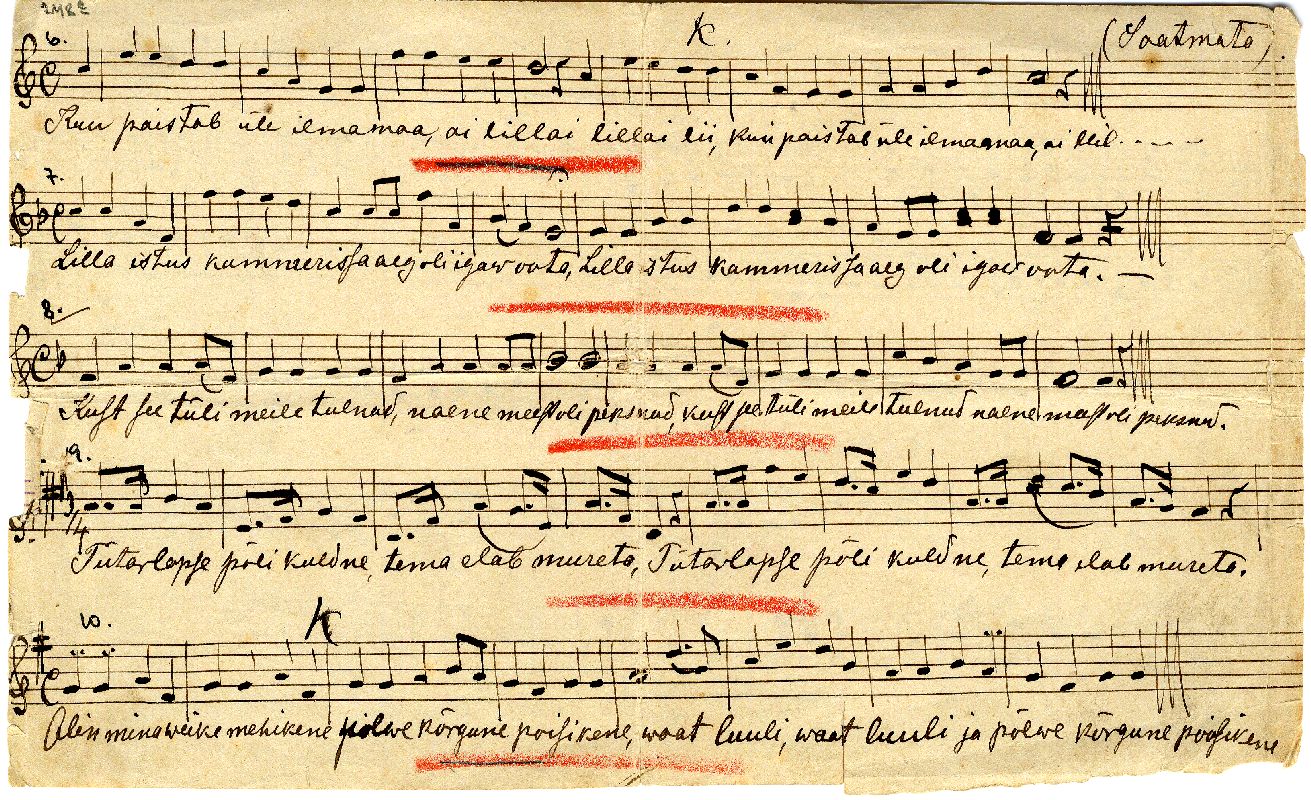 6.
K.
(Saatmata).
Kuu paistab üle ilmamaa, ai lillai lillai lii, kuu paistab üle ilmamaa, ai lil - - - -
7.
Lilla istus kammeris ja aeg oli igaw oota, Lilla istus kammeris ja aeg oli igaw oota. —
8.
Kust see tüli meile tulnud, naene meest oli peksnud, kust see tüli meile tulnud naene meest oli peksnud.
9.
3/4
Tütarlapse põli kuldne, tema elab mureta, Tütarlapse põli kuldne, tema elab mureta.
10.
K
Olin mina weike mehikene põlwe kõrgune poisikene, waat luuli, waat luuli ja põlwe kõrgune poisikene